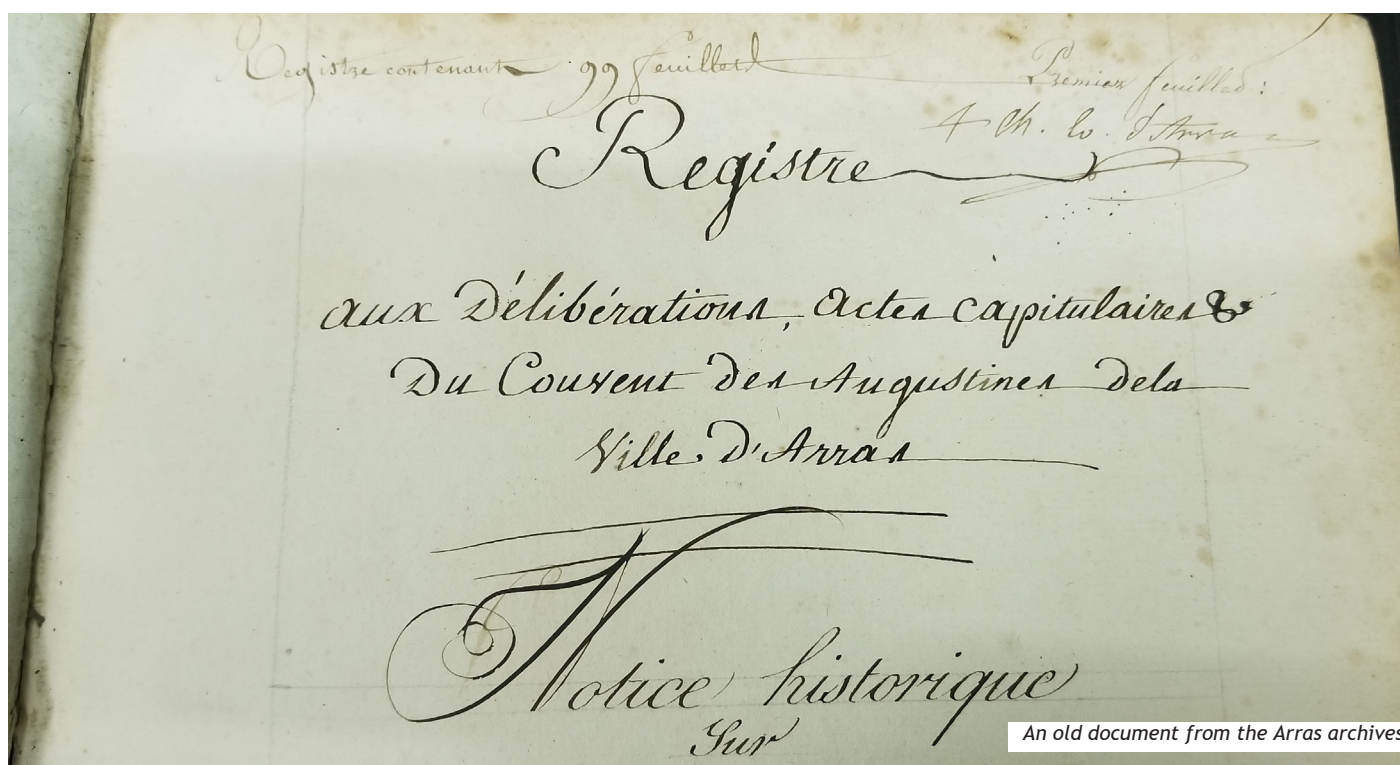 Registre contenant 99 feuilletd
Premier feuilled :
4 Ch. lo. d'Arras
Registre
aux Délibérations, Actes capitulaires &
Du Couvent des Augustines dela
Ville d'Arras
Notice historique
Sur
An old document from the Arras archives